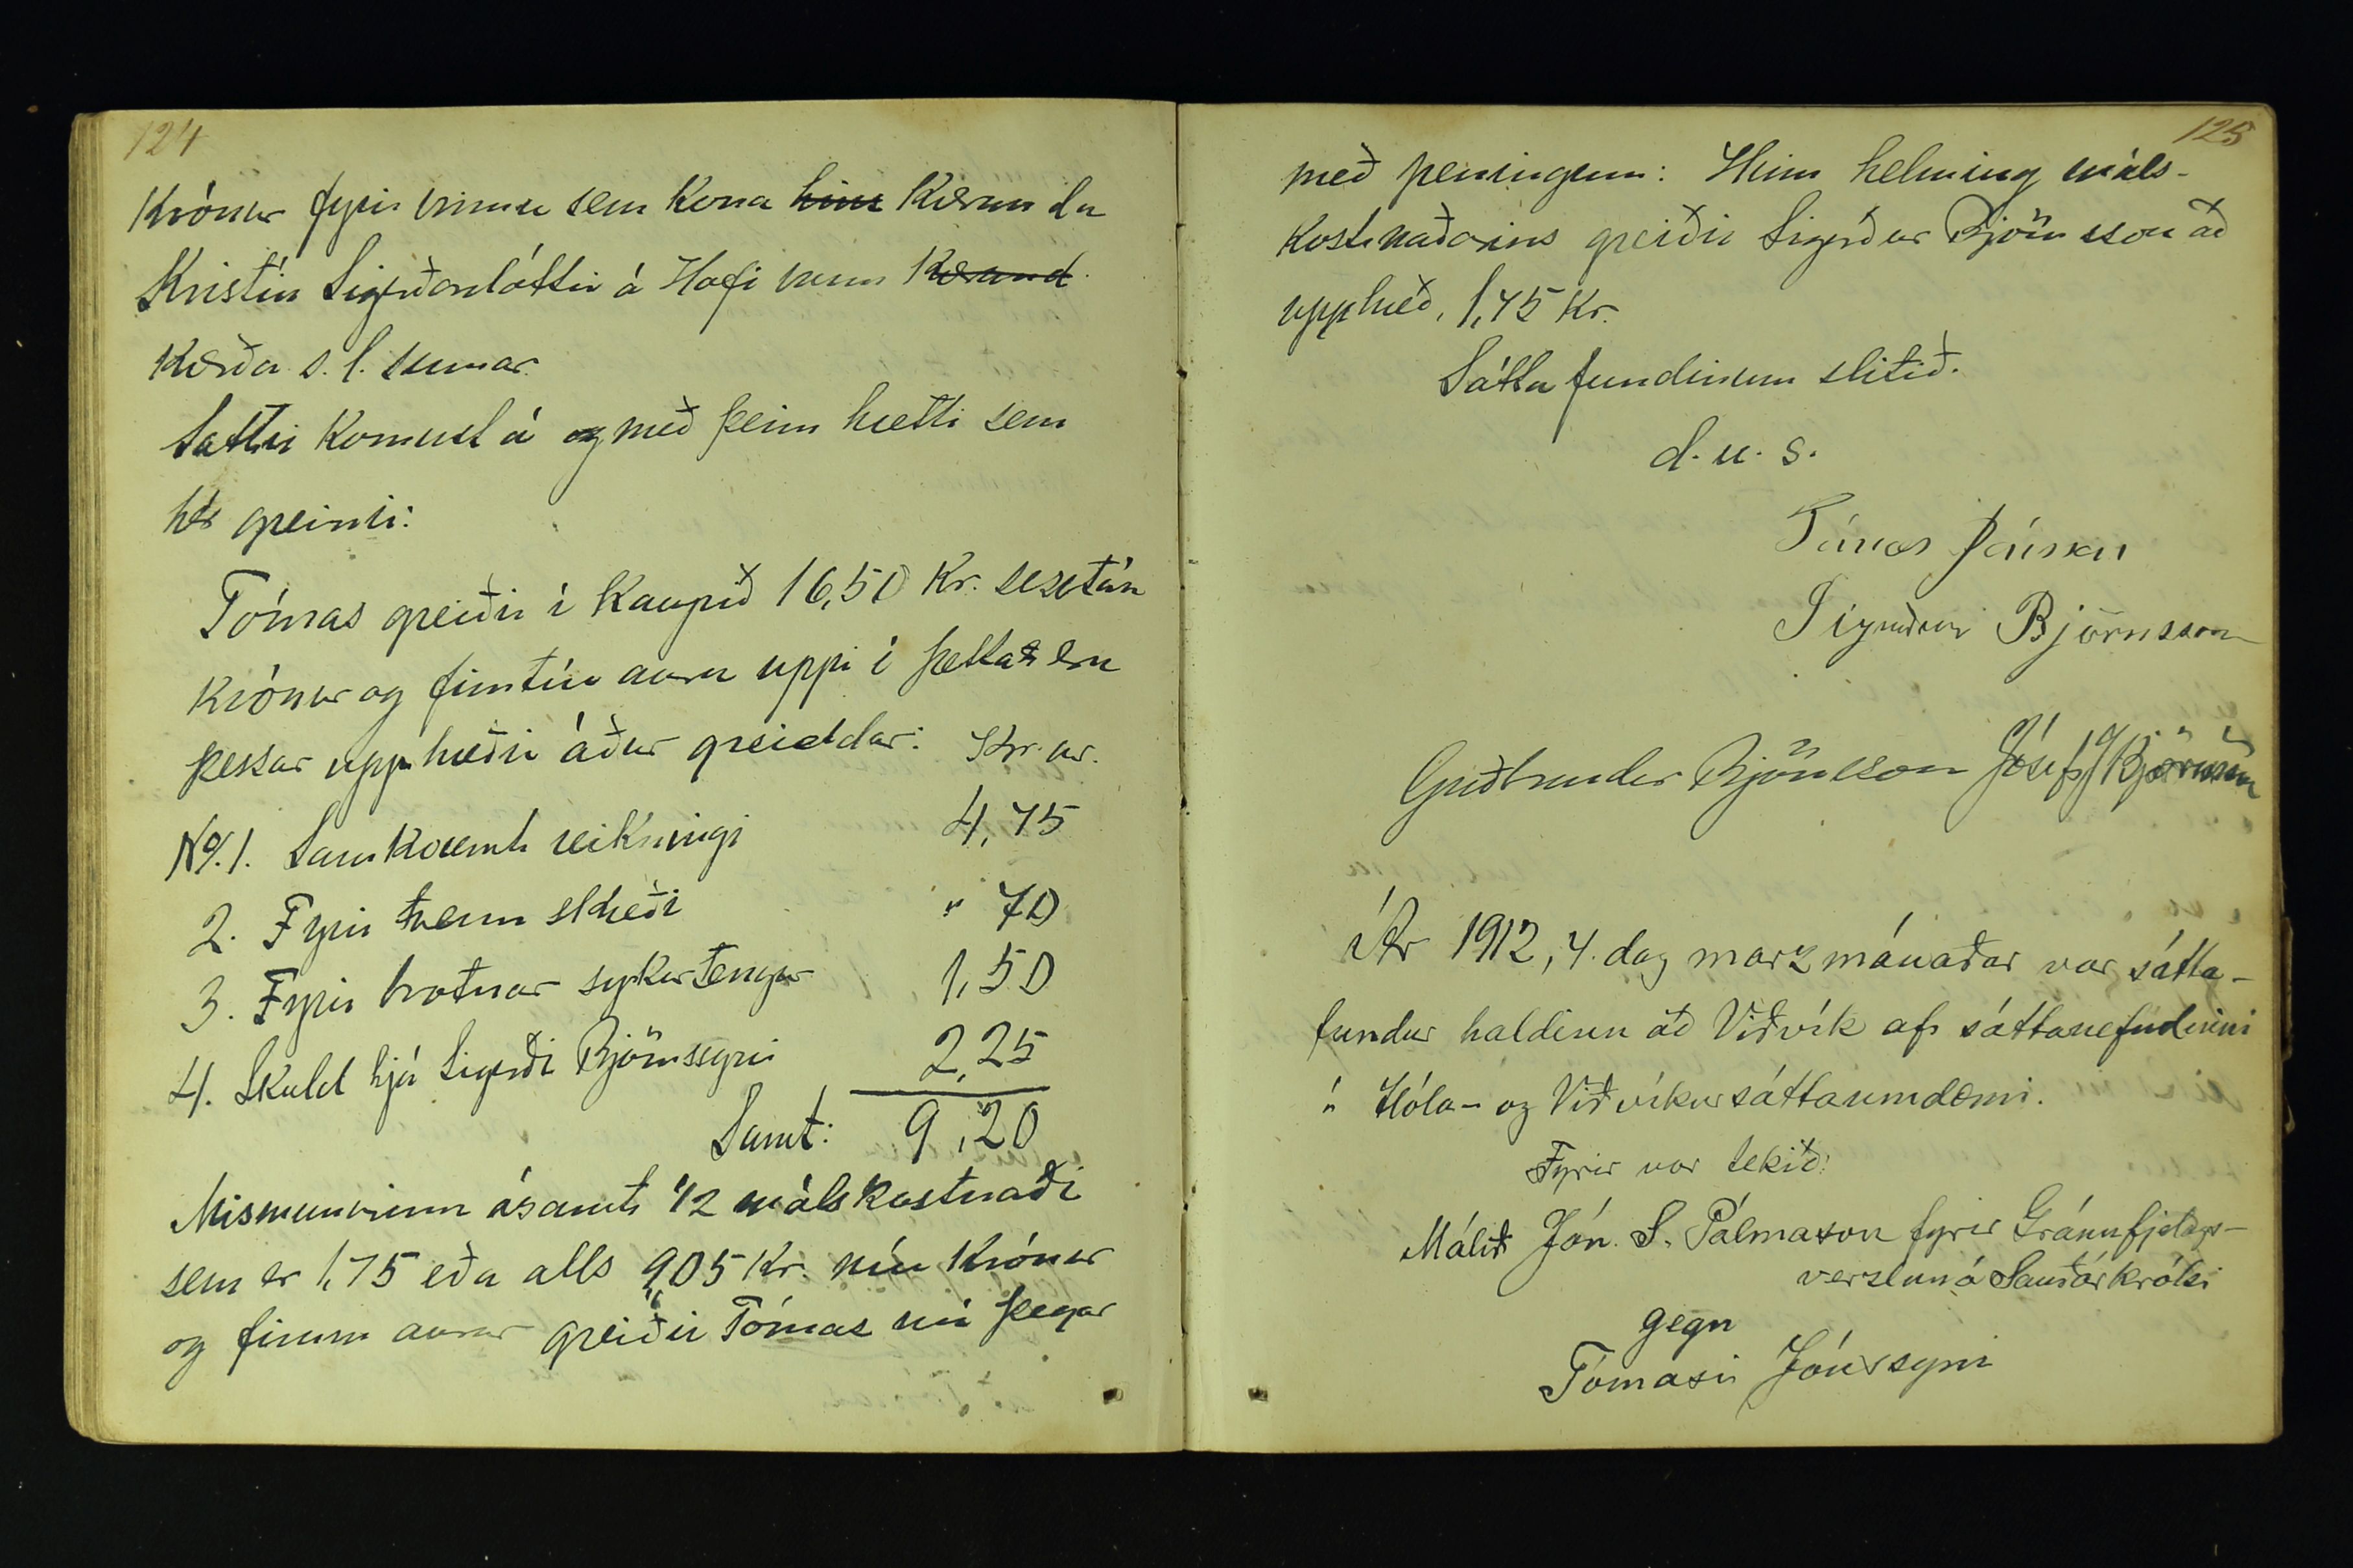 124
Krónur fyrir vinnu sem kona hins kæranda
Kristín Sigurðardóttir á Hofi vann kærand
kærða s. l. sumar.
Sættir komust á og með þeim hætti sem
hér greinir:
Tómas greiðir í kaupið 16,50 kr. sextán
krónur og fimtíu aura uppi í þetta eru
þessar upphæðir áður greiddar: Kr. ar.
No. 1. Samkvæmt reikningi 4,75
2. Fyrir tvenn stæði " 70
3. Fyrir brotnar sykurtengur 1,50
4. Skuld hjá Sigurði Björnssyni 2,25
Samt: 9,20
Mismuninn ásamt 1/2 málskostnaði
sem er 1,75 eða alls 9,05 kr. níu krónur
og fimm aurar greiðir Tómas nú þegar
125
með peningum: Hinn helming máls-
kostnaðarins greiðir Sigurður Björnsson að
upphæð, 1,75 kr.
Sáttafundinum slitið.
d. u. s.
Tómas Jónsson
Sigurður Björnsson
Guðbrandur Björnsson Jósef J Björnsson
Ár 1912, 4. dag marzmánaðar var sátta-
fundur haldinn að Viðvík af sáttanefndinni
í Hóla- og Viðvíkursáttaumdæmi.
Fyrir var tekið:
Málið Jón. S. Pálmason fyrir Gránufjelags-
verzlun á Sauðárkróki
gegn
Tómasi Jónssyni